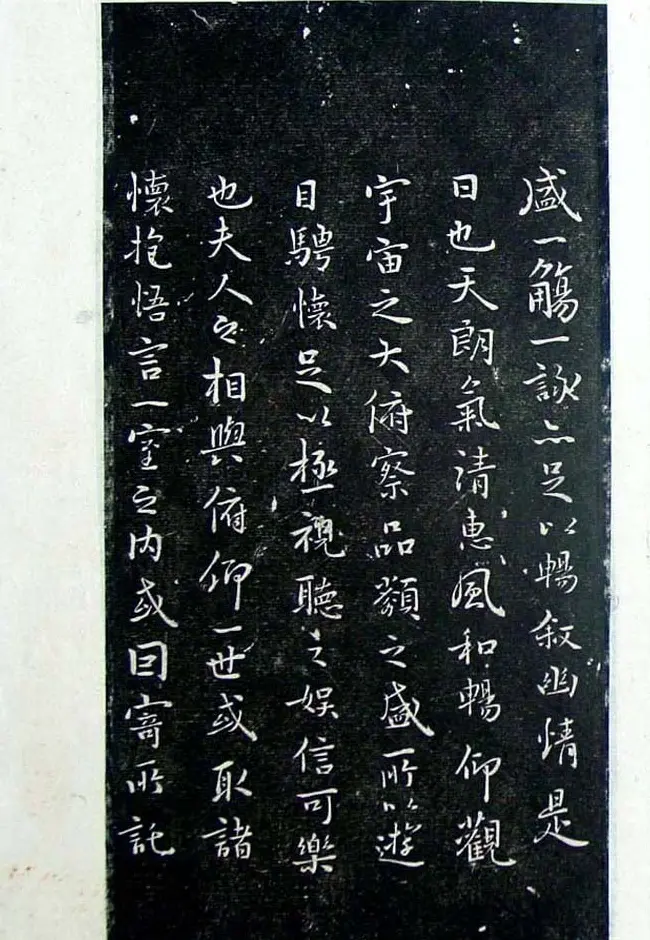 盛一觴一詠亦足以暢叙幽情是
日也天朗氣清惠風和暢仰觀
宇宙之大俯察品類之盛所以遊
目騁懷足以極視聽之娛信可樂
也夫人之相與俯仰一世或取諸
懷抱悟言一室之内或因寄所託